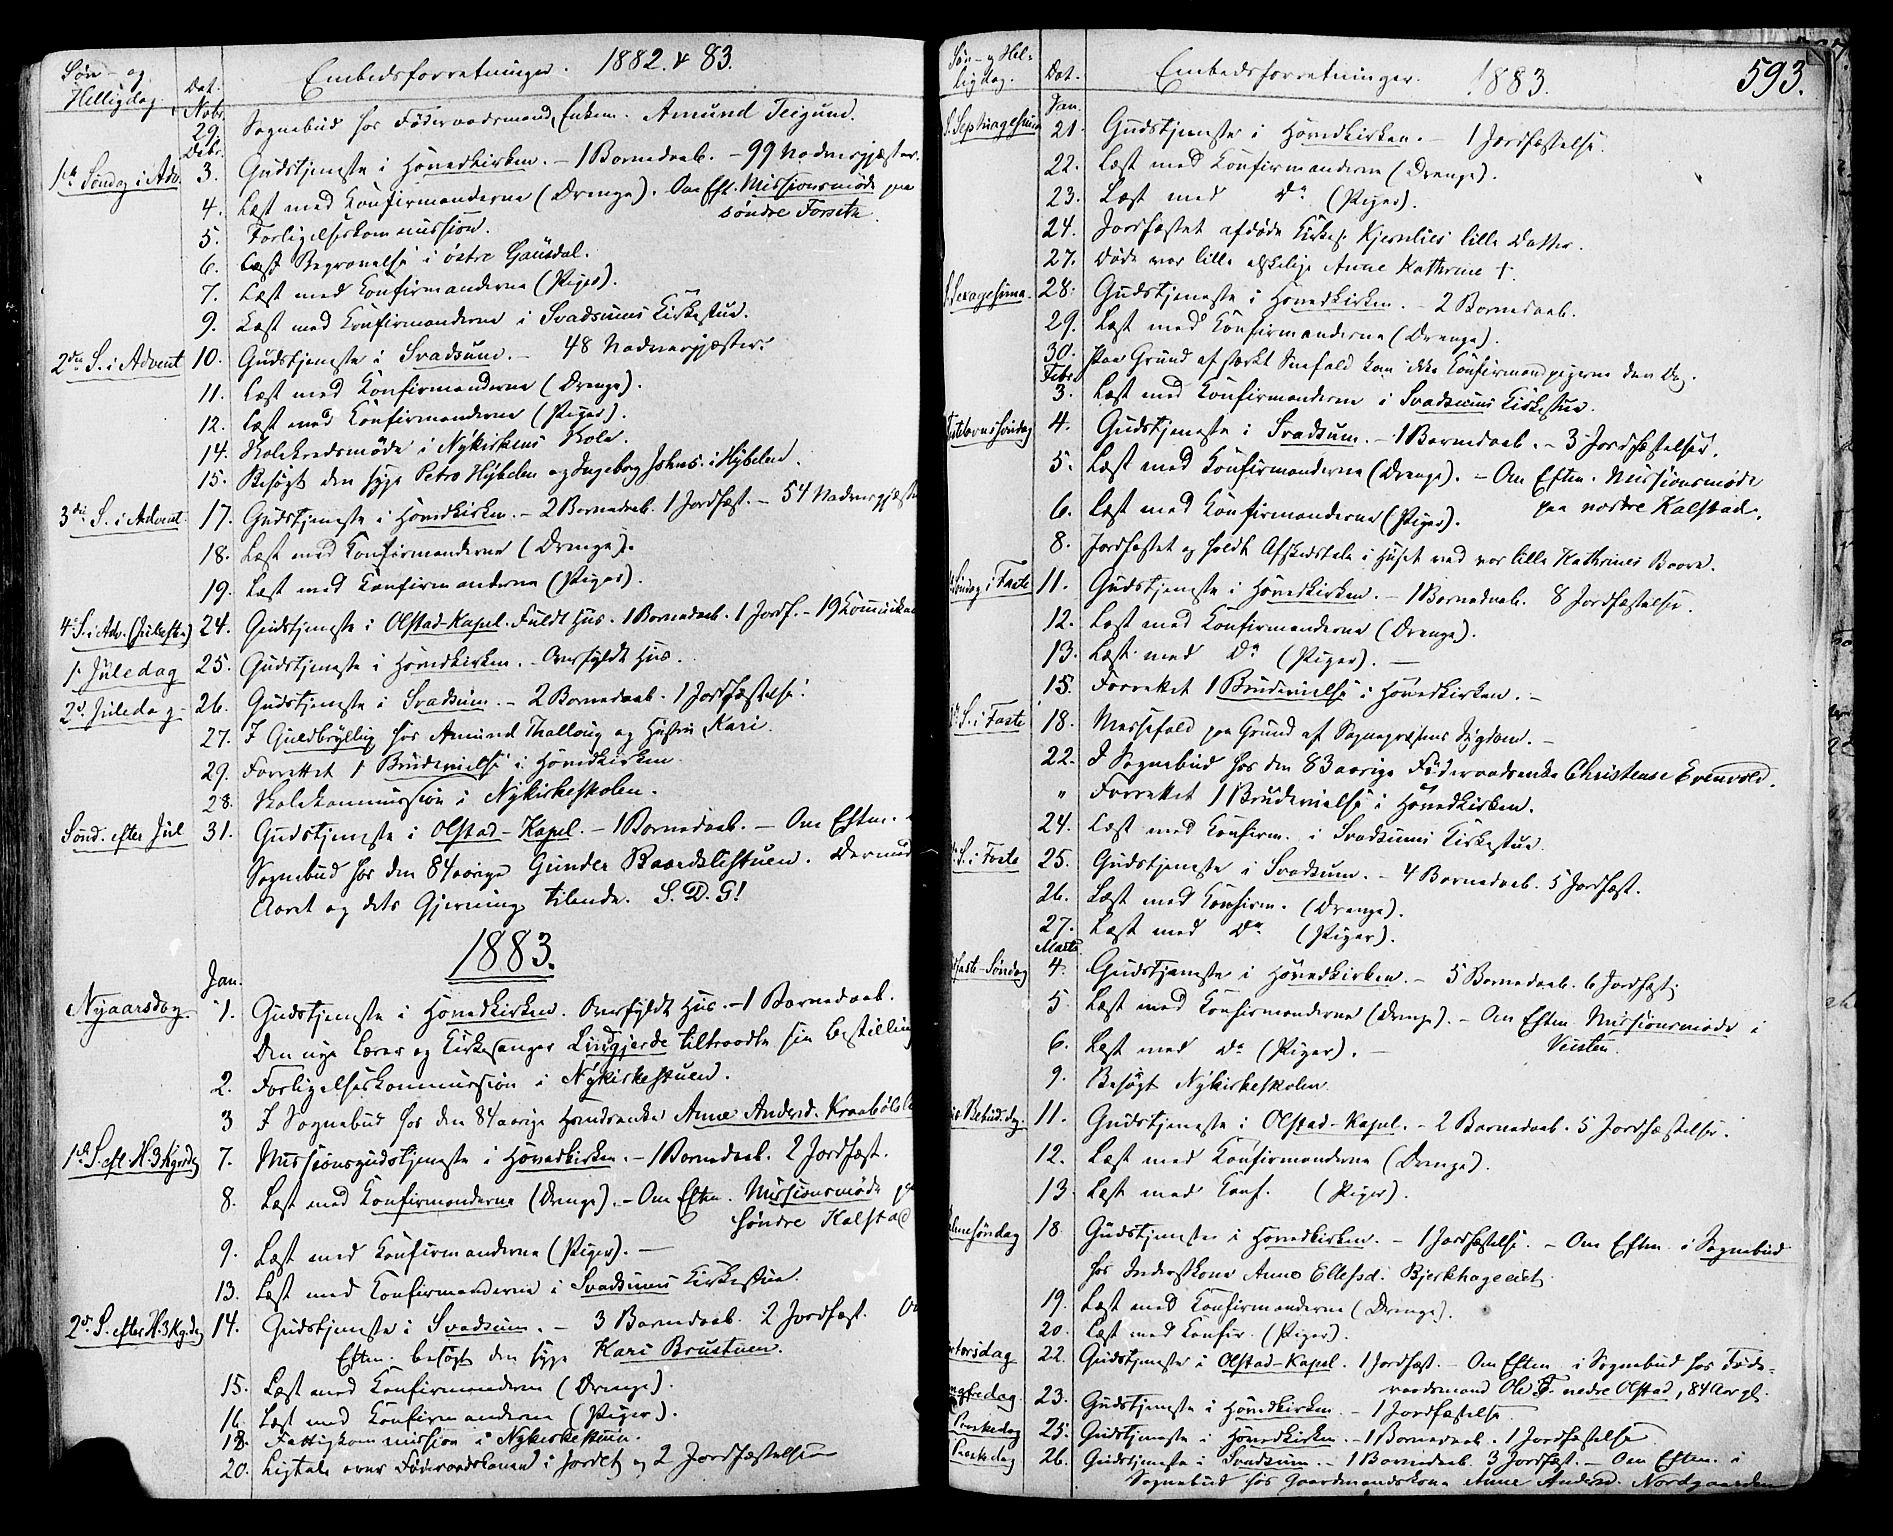 Søn- og Helligdag. Dat. Embedsforretninger. 1882 & 83.
Novbr. 29. Sognebud hos Föderaadsmand, Enkem. Amund Teigum.
Decbr.
1ste Søndag i Adv. 3. Gudstjeneste i Hovedkirken. - 1 Barnedaab. - 99 Nadvergjæster.
4. Læst med Konfirmanderne (Drenge). Om Eft. Missionsmøde paa
søndre Forseth.
5. Forligelseskommission.
6. Begravelse i östre Gausdal.
7. Læst med Konfirmanderne (Piger).
9. Læst med Konfirmanderne i Svadsums Kirkestue.
2den S. i Advent 10. Gudstjeneste i Svadsum. - 48 Nadvergjæster.
11. Læst med Konfirmanderne (Drenge).
12. Læst med Konfirmanderne (Piger).
14. Skolekredsmöde i Nykirkens Skole.
15. Besøgt den syge Petro Hybelen og Ingeborg Johns. i Hybelen.
3die S. i Advent. 17. Gudstjeneste i Hovedkirken. - 2 Barnedaab. 1 Jordfæst. - 54 Nadvergjæste
18. Læst med Konfirmanderne (Drenge).
19. Læst med Konfirmanderne (Piger).
4. S. i Adv. (Juleaften) 24. Gudstjeneste i Olstad-Kapel. Fuldt Hus. 1 Barnedaab. 1 Jordf. - 19 Kommunikan
1. Juledag 25. Gudstjeneste i Hovedkirken. - Overfyldt Hus.
2d. Juledag 26. Gudstjeneste i Svadsum. - 2 Barnedaab. 1 Jordfæstelse.
27. I Guldbryllup hos Amund Thalloug og Hustru Kari.
29. Forrettet 1 Brudevielse i Hovedkirken.
28. Skolekommission i Nykirkeskolen.
Sönd. efter Jul 31. Gudstjeneste i Olstad-Kapel. - 1 Barnedaab. - Om Eftm.
Sognebud hos den 84 aarige Gunder Baardslistuen. Dermed
Aaret og dets Gjerning tilende. S. D. G!
1883.
Jan.
Nyaarsdag. 1. Gudstjeneste i Hovedkirken. Overfyldt Hus. - 1 Barnedaab.
Den nye Lærer og Kirkesanger Lindgjerde tiltraadte sin Bestilling
2. Forligelseskommission i Nykirkestuen.
3 I Sognebud hos den 84 aarige Anne Andersd. Kraabøls
1ste S. eft. H. 3 Kgrsdg 7. Missionsgudstjeneste i Hovedkirken. - 1 Barnedaab. 2 Jordfæst.
8. Læst med Konfirmanderne (Drenge). - Om Eftm. Missionsmøde p
søndre Kalstad
9. Læst med Konfirmanderne (Piger). -
13. Læst med Konfirmanderne i Svadsums Kirkestue.
2d. S. efter H. 3 Kg.dg 14. Gudstjeneste i Svadsum. - 3 Barnedaab. 2 Jordfæst. Om
Eftm. besøgt den syge Kari Brustuen.
15. Læst med Konfirmanderne (Drenge).
16. Læst med Konfirmanderne (Piger).
18. Fattigkommission i Nykirkestuen.
20. Ligtale over Föderaadskonen i Jordet og 2 Jordfæstelser
Søn- og Helligdag. Dat. Embedsforretninger. 1883. 593.
Jan.
S. Septuagesima 21. Gudstjeneste i Hovedkirken. - 1 Jordfæstelse.
22. Læst med Konfirmanderne (Drenge).
23. Læst med Do (Piger).
24. Jordfæstet afdøde Kirkes. Kjernlies lille Datter.
27. Døde vor lille elskelige Anne Kathrine †.
S. Sexagesima. 28. Gudstjeneste i Hovedkirken. - 2 Barnedaab.
29. Læst med Konfirmanderne (Drenge).
30. Paa Grund af stærkt Snefald kom ikke Konfirmandpigerne den Dag.
Febr. 3. Læst med Konfirmanderne i Svadsums Kirkestue.
Fastelavnssøndag 4. Gudstjeneste i Svadsum. - 1 Barnedaab. - 3 Jordfæstelser.
5. Læst med Konfirmanderne (Drenge). - Om Eftm. Missionsmøde
paa nordre Kalstad.
6. Læst med Konfirmanderne (Piger).
8. Jordfæstet og holdt Afskedstale i Huset ved vor lille Kathrines Baare.
Søndag i Faste 11. Gudstjeneste i Hovedkirken. - 1 Barnedaab. 8 Jordfæstelser.
12. Læst med Konfirmanderne (Drenge).
13. Læst med Do (Piger). -
15. Forrettet 1 Brudevielse i Hovedkirken. -
S. i Faste 18. Messefald paa Grund af Sognepræstens Sygdom. -
22. I Sognebud hos den 83 aarige Föderaadsenke Christense Evenvold.
" Forrettet 1 Brudevielse i Hovedkirken.
24. Læst med Konfirm. i Svadsums Kirkestue.
S. i Faste 25. Gudstjeneste i Svadsum. - 4 Barnedaab. 5 Jordfæst.
26. Læst med Konfirm. (Drenge).
27. Læst med Do (Piger).
Marts
faste-Søndag 4. Gudstjeneste i Hovedkirken. - 5 Barnedaab. 6 Jordfæst.
5 Læst med Konfirmanderne (Drenge). - Om Eftm Missionsmøde i
6. Læst med Do (Piger). -
9. Besøgt Nykirkeskolen.
Bebud. dg. 11. Gudstjeneste i Olstad-Kapel. - 2 Barnedaab. 5 Jordfæstelser.
12. Læst med Konfirmanderne (Drenge).
13. Læst med Konf. (Piger).
Palmesøndag 18. Gudstjeneste i Hovedkirken. - 1 Jordfæstelse. - Om Eftm. i Sognebud
hos Inderstkone Anne Ellefsd. Bjerkhageeiet.
19. Læst med Konfirmanderne (Drenge).
20. Læst med Konfir. (Piger).
Skjærtorsdag 22. Gudstjeneste i Olstad-Kapel. 1 Jordfæst. - Om Eftm i Sognebud hos Føde-
raadsmand Ole T. nedre Olstad, 84 Aar gl.
Langfredag. 23. Gudstjeneste i Hovedkirken. - 1 Jordfæstelse
Paaskedag 25. Gudstjeneste i Hovedkirken. - 1 Barnedaab. 1 Jordfæstelse
Paaskedag 26. Gudstjeneste i Svadsum. - 1 Barnedaab. 3 Jordfæst. - Om Eftm. i
Sognebud hos Gaardmandskone Anne Andersd. Nordgaarden